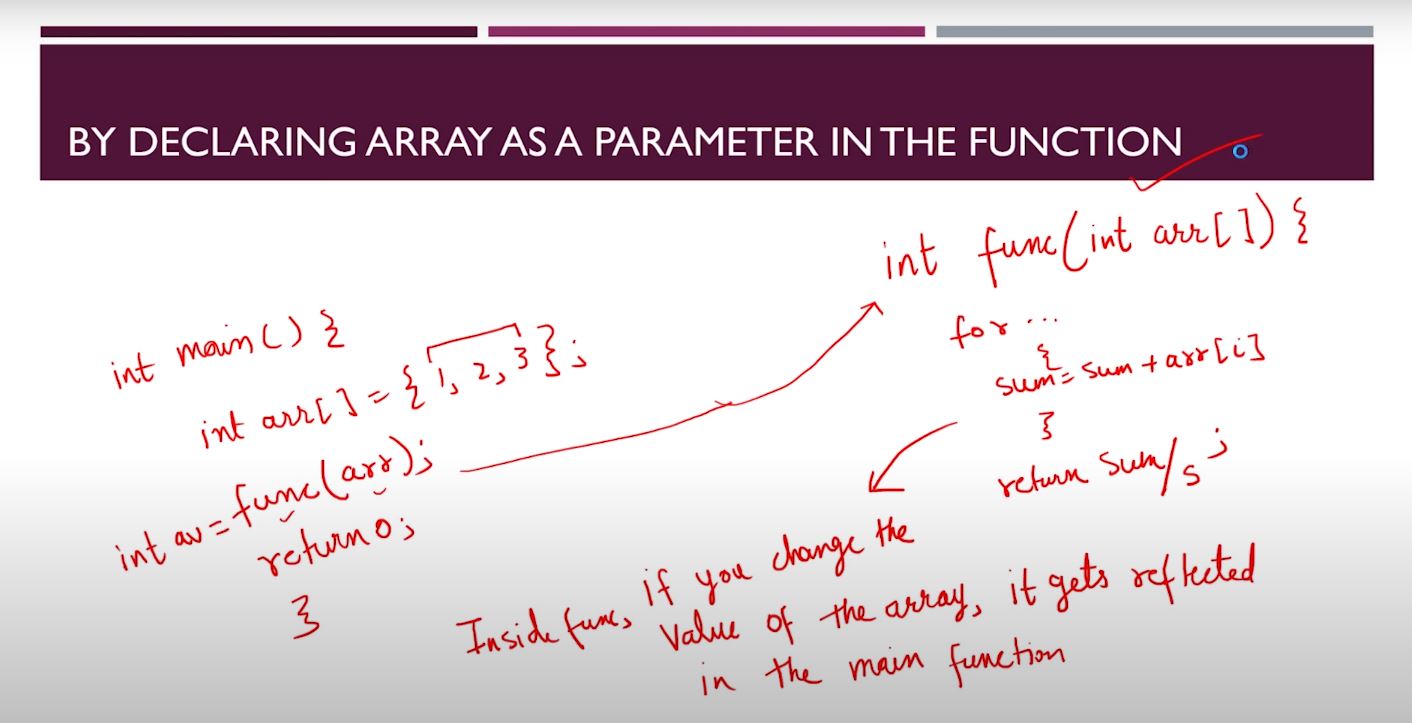 BY DECLARING ARRAY AS A PARAMETER IN THE FUNCTION
int main() {
int arr[] = {1, 2, 3};
int av = func(arr);
return 0;
}
int func(int arr[]) {
for ...
{
sum = sum + arr[i]
}
return sum/5;
Inside func, if you change the
value of the array, it gets reflected
in the main function